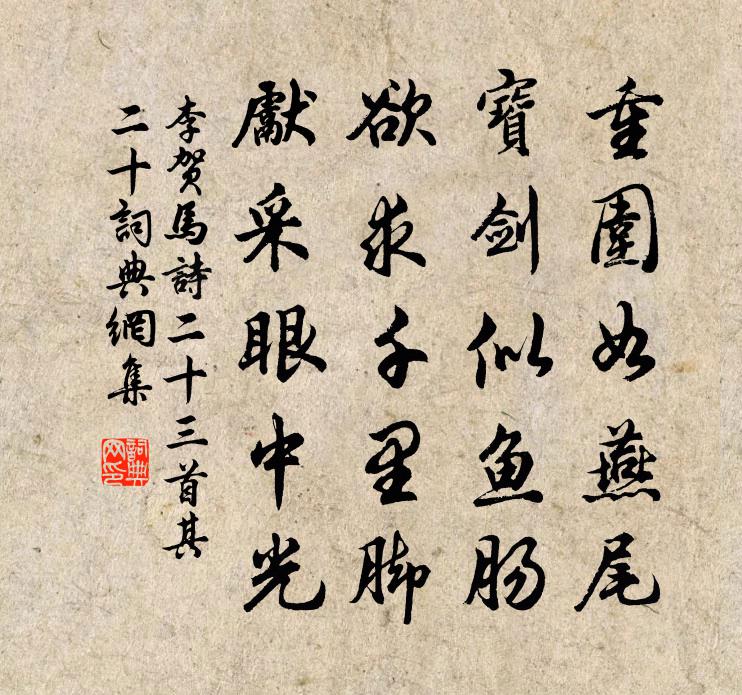 重圍如燕尾
寶劍似鱼肠
欲求千里脚
獻采眼中光
李賀馬詩二十三首其
二十詞典網集
詞典
网印